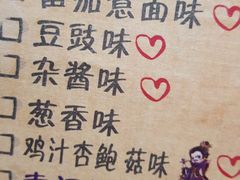 番茄意面味
豆豉味
杂酱味
葱香味
鸡汁杏鲍菇味